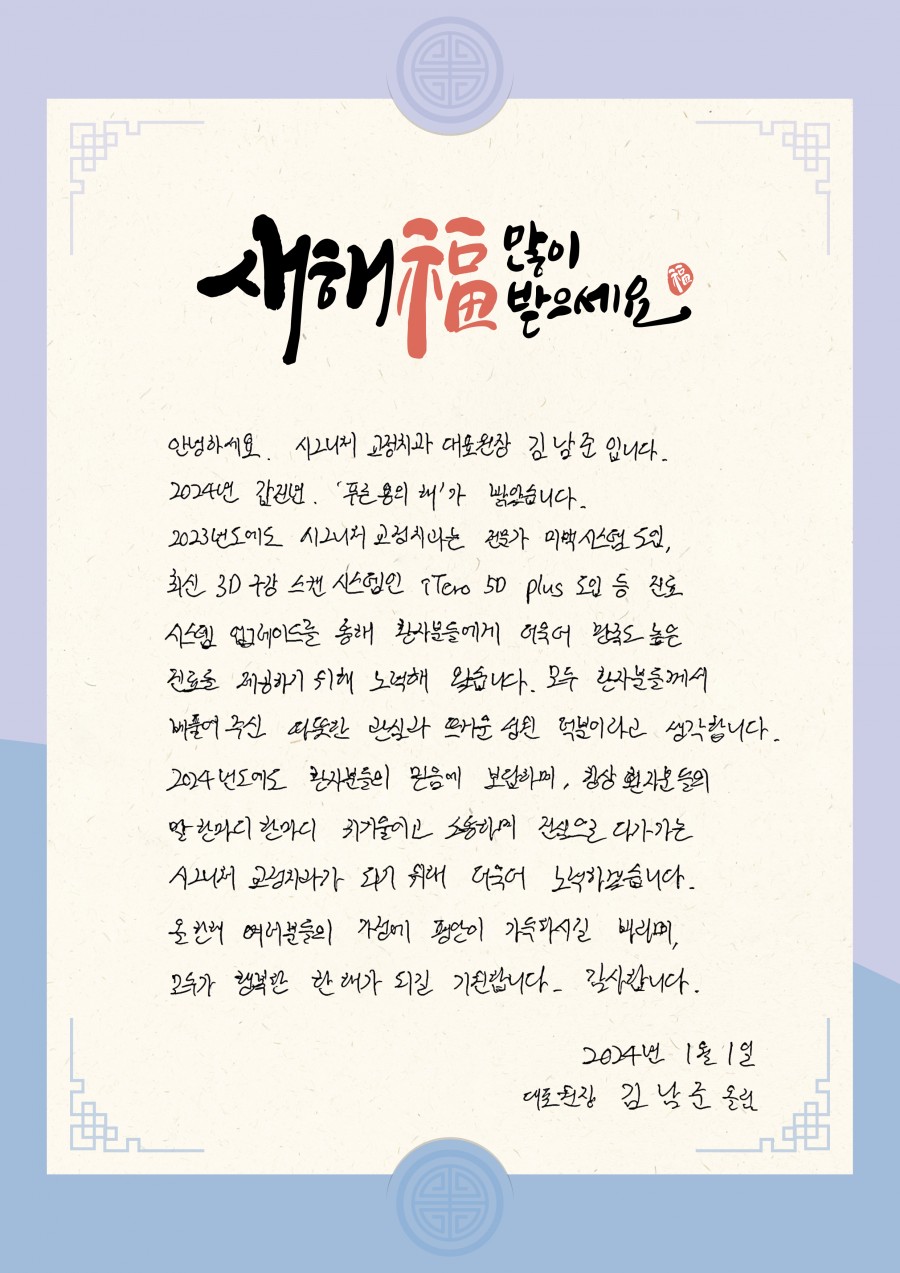 새해福많이
받으세요
福
안녕하세요. 시그니처 교정치과 대표원장 김남준입니다.
2024년 갑진년. '푸른 용의 해'가 밝았습니다.
2023년도에도 시그니처 교정치과는 전문가 미백시스템 도입,
최신 3D 구강 스캔 시스템인 iTero 5D plus 도입 등 진료
시스템 업그레이드를 통해 환자분들에게 더욱더 만족도 높은
진료를 제공하기 위해 노력해 왔습니다. 모두 환자분들께서
베풀어 주신 따뜻한 관심과 뜨거운 성원 덕분이라고 생각합니다.
2024년도에도 환자분들의 믿음에 보답하며, 항상 환자분들의
말 한마디 한마디 귀기울이고 소통하며 진심으로 다가가는
시그니처 교정치과가 되기 위해 더욱더 노력하겠습니다.
올 한해 여러분들의 가정에 평안이 가득하시길 바라며,
모두가 행복한 한 해가 되길 기원합니다. 감사합니다.
2024년 1월 1일
대표원장 김남준 올림